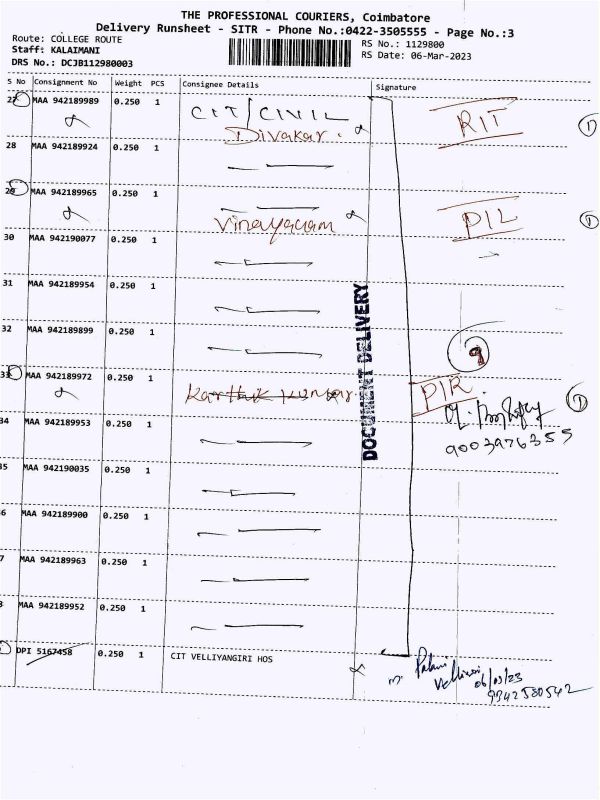 THE PROFESSIONAL COURIERS, Coimbatore
Delivery Runsheet - SITR - Phone No.:0422-3505555 - Page No.:3
Route: COLLEGE ROUTE
RS No.: 1129800
Staff: KALAIMANI
RS Date: 06-Mar-2023
DRS No.: DCJB112980003
S No Consignment No Weight PCS Consignee Details Signature
27 MAA 942189989 0.250 1 CIT/CIVIL RIT 1
Divakar.
28 MAA 942189924 0.250 1
29 MAA 942189965 0.250 1
Vinayagam PIL 1
30 MAA 942190077 0.250 1
31 MAA 942189954 0.250 1
DOCUMENT DELIVERY
32 MAA 942189899 0.250 1
9
33 MAA 942189972 0.250 1 Karthik Kumar. PIR 1
34 MAA 942189953 0.250 1 9003976355
35 MAA 942190035 0.250 1
6 MAA 942189900 0.250 1
7 MAA 942189963 0.250 1
8 MAA 942189952 0.250 1
DPI 5167458 0.250 1 CIT VELLIYANGIRI HOS
06/03/23
9942580542